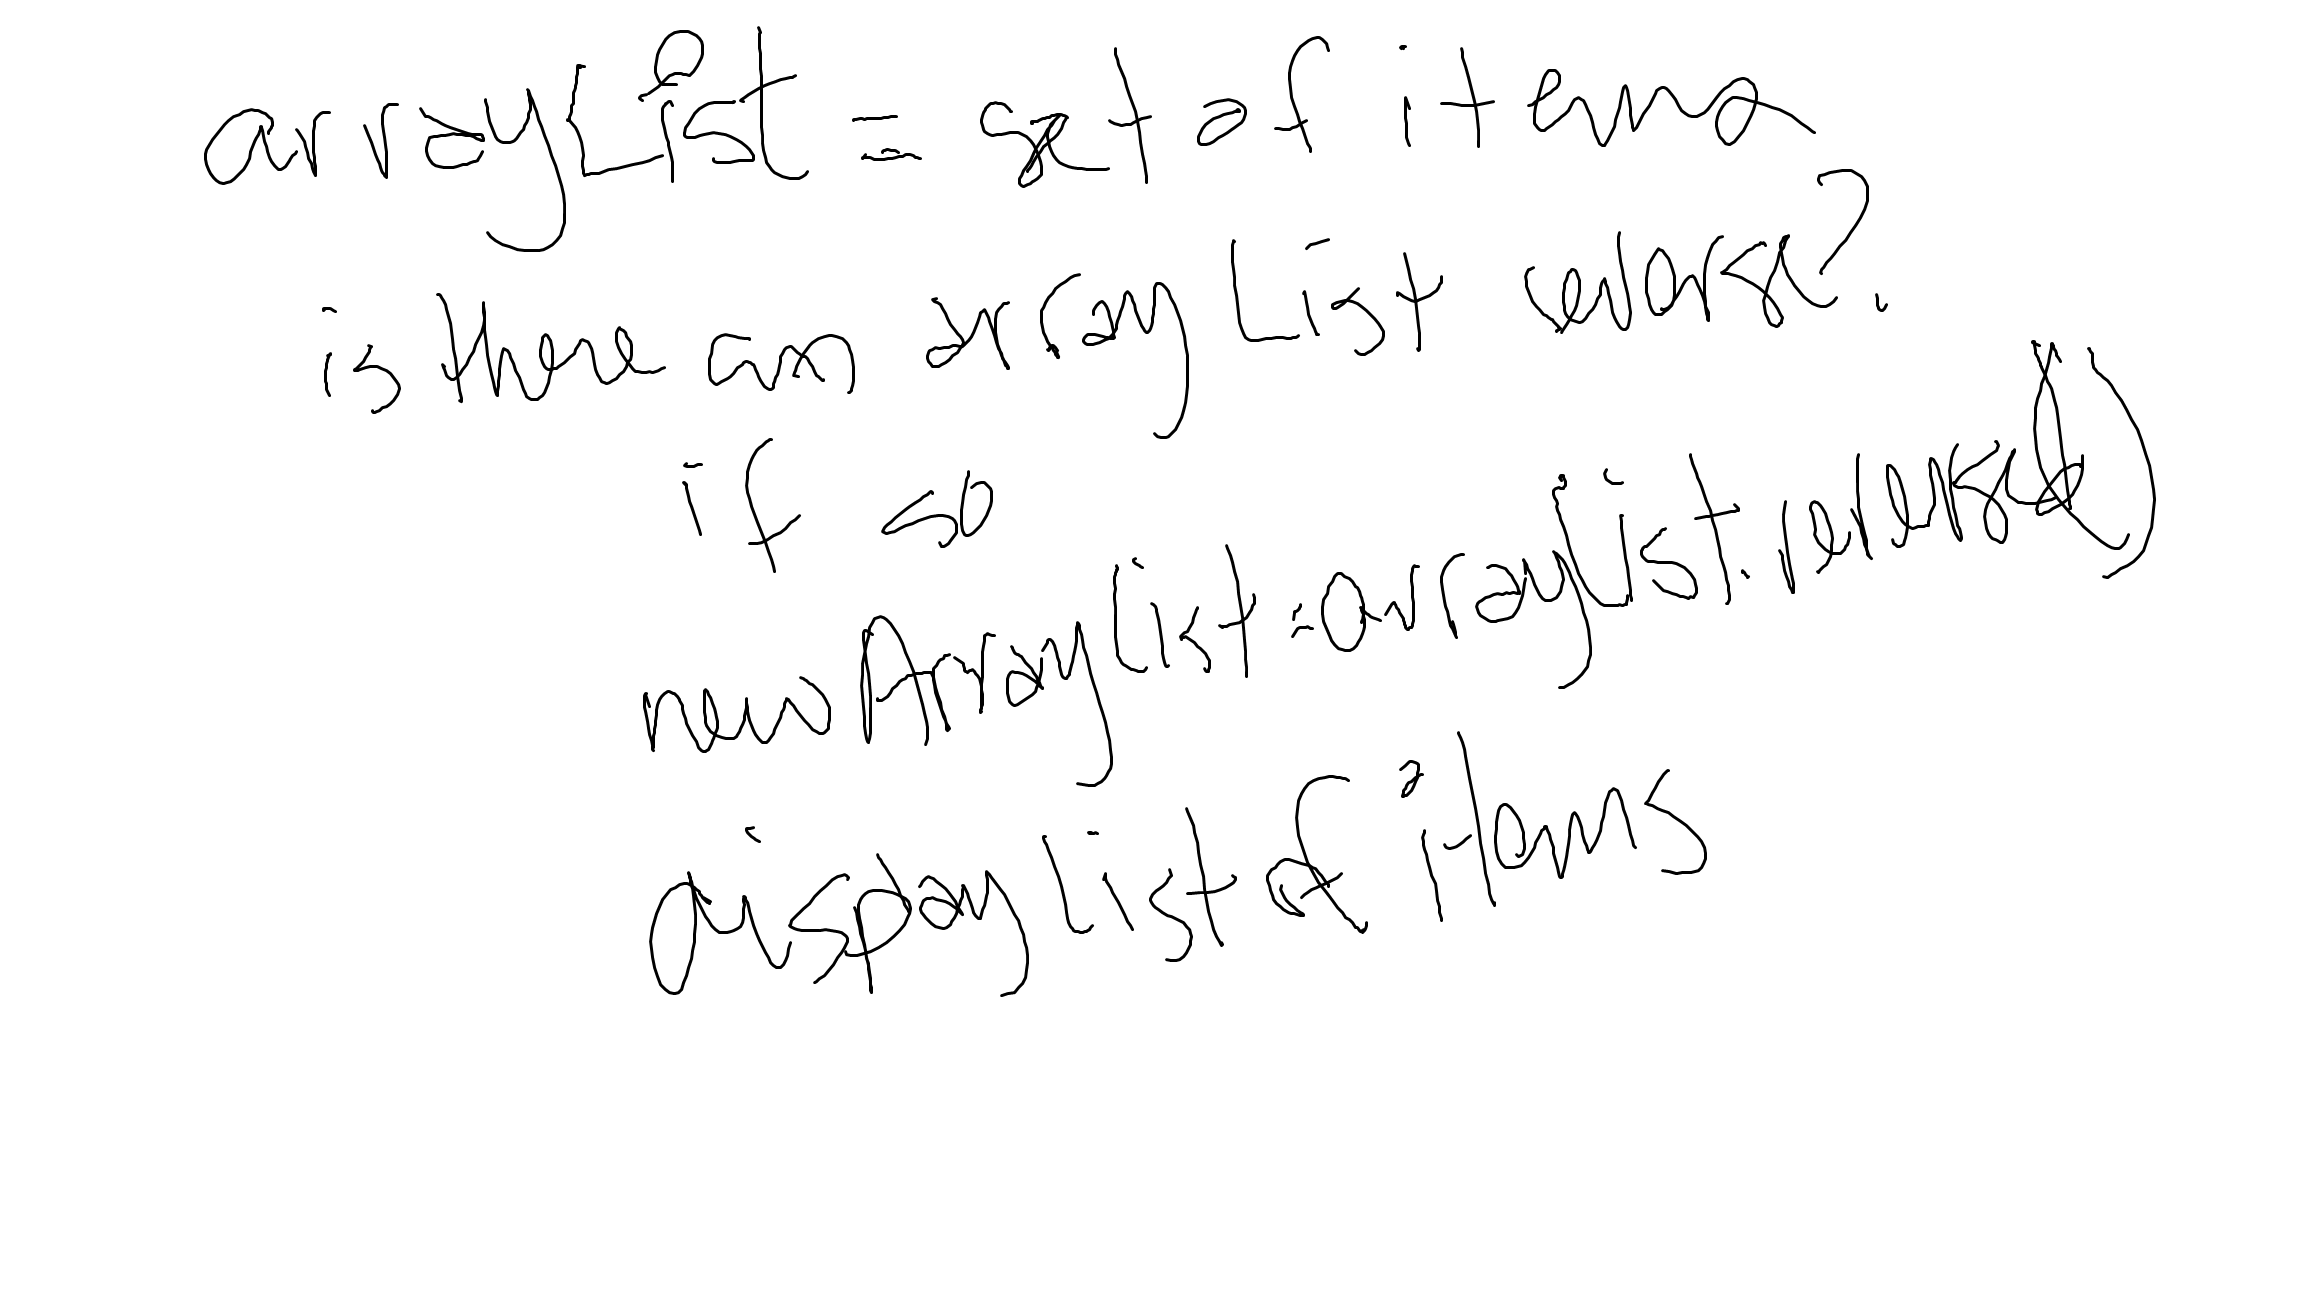 arrayList = set of items
is there an arrayList reverse?
if so
newArraylist = arraylist.reversed()
display list of items